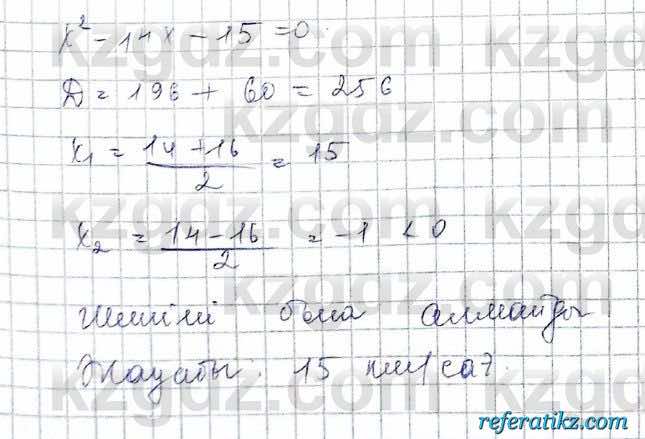 x² - 14x - 15 = 0
D = 196 + 60 = 256
x₁ = (14 + 16)/2 = 15
x₂ = (14 - 16)/2 = -1 < 0
Шешімі бола алмайды
Жауабы: 15 км/сағ.
kzgdz.com
referatikz.com